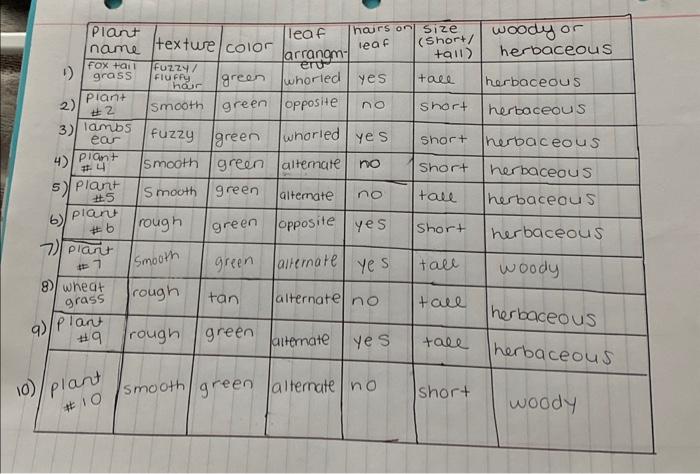 plant name texture color leaf arrangment hairs on leaf size (short/tall) woody or herbaceous
1) fox tail grass fuzzy/fluffy hair green whorled yes tall herbaceous
2) Plant #2 smooth green opposite no short herbaceous
3) lambs ear fuzzy green whorled yes short herbaceous
4) plant #4 smooth green alternate no short herbaceous
5) plant #5 smooth green alternate no tall herbaceous
6) plant #6 rough green opposite yes short herbaceous
7) plant #7 smooth green alternate yes tall woody
8) wheat grass rough tan alternate no tall herbaceous
9) plant #9 rough green alternate yes tall herbaceous
10) plant #10 smooth green alternate no short woody